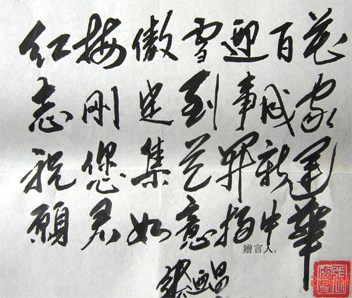 红梅傲雪迎百花
志刚必到事成家
祝您集艺罪新运
愿君如意指中华
赠言人：